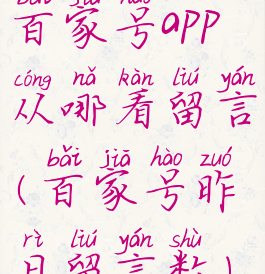 bǎi jiā hào
百家号app
cóng nǎ kàn liú yán
从哪看留言
bǎi jiā hào zuó
(百家号昨
rì liú yán shù
日留言数)